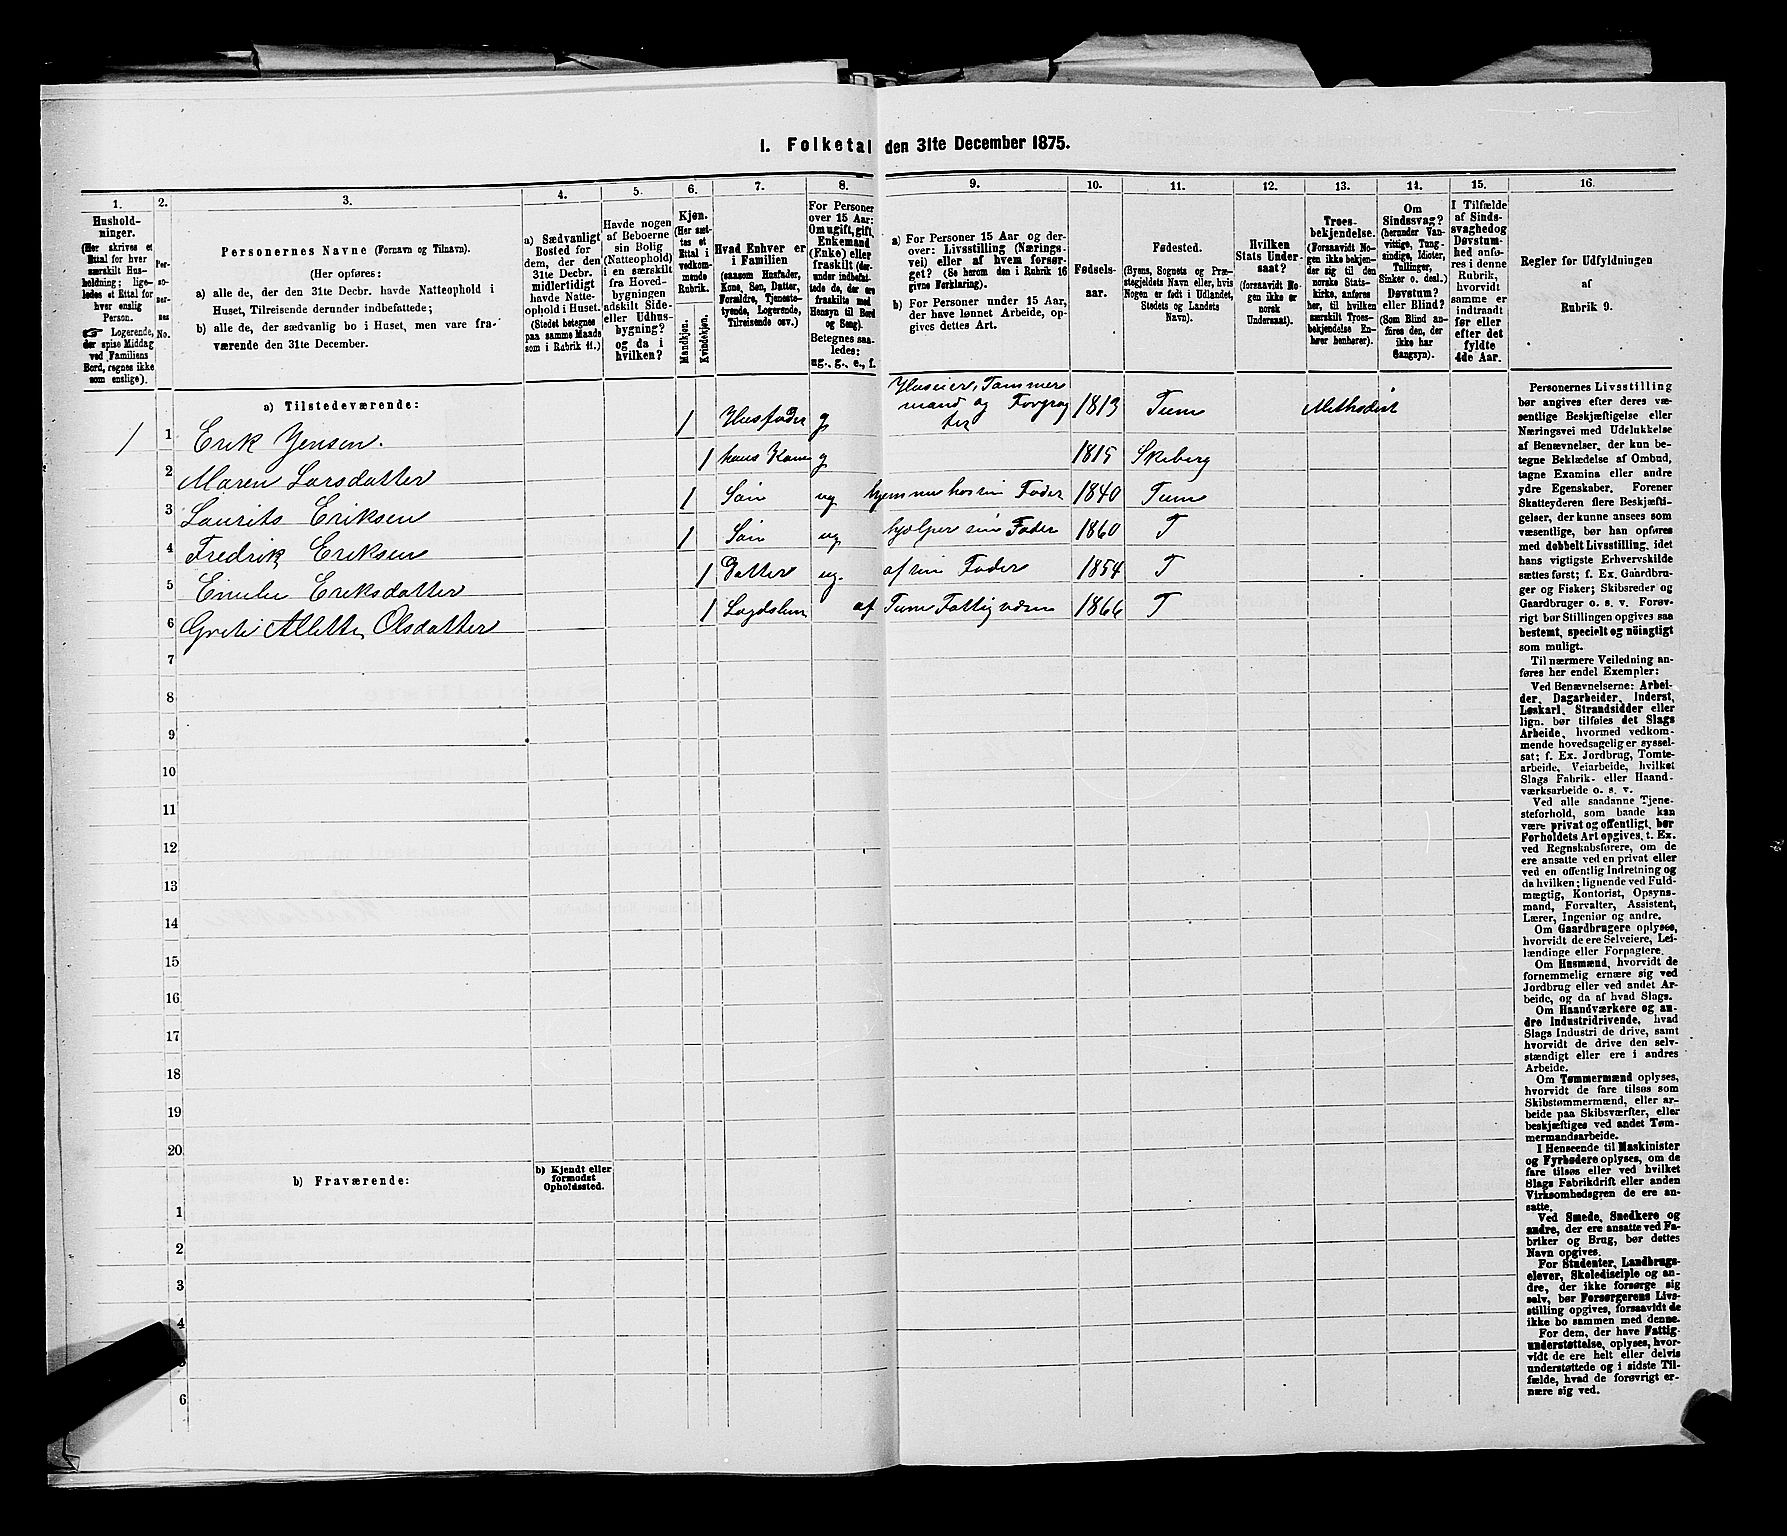 I. Folketal den 31te December 1875.
1.
Hushold-
ninger.
(Her skrives et
Ettal for hver
særskilt Hus-
holdning; lige-
ledes et Ettal for
hver enslig
Person.
☞ Logerende,
der spise Middag
ved Familiens
Bord, regnes ikke
som enslige).
2.
Per-
so-
ner-
nes
No.
3.
Personernes Navne (Fornavn og Tilnavn).
(Her opføres:
a) alle de, der den 31te Decbr. havde Natteophold i
Huset, Tilreisende derunder indbefattede;
b) alle de, der sædvanlig bo i Huset, men vare fra-
værende den 31te December.
4.
a) Sædvanligt
Bosted for
dem, der den
31te Decbr.
midlertidigt
havde Natte-
ophold i Huset.
(Stedet betegnes
paa samme Maade
som i Rubrik 11.)
5.
Havde nogen
af Beboerne
sin Bolig
(Natteophold)
i en særskilt
fra Hoved-
bygningen
adskilt Side-
eller Udhus-
bygning?
og da i
hvilken?
6.
Kjøn.
(Her sæt-
tes et
Ettal i
vedkom-
mende
Rubrik.
Mandkjøn.
Kvindekjøn.
7.
Hvad Enhver er
i Familien
(saasom Husfader,
Kone, Søn, Datter,
Forældre, Tjeneste-
tyende, Logerende,
Tilreisende osv.)
8.
For Personer
over 15 Aar:
Om ugift, gift,
Enkemand
(Enke) eller
fraskilt (der-
under indbefat-
tede de, der ere
fraskilte med
Hensyn til Bord
og Seng).
Betegnes saa-
ledes:
ug., g., e., f.
9.
a) For Personer 15 Aar og der-
over: Livsstilling (Nærings-
vei) eller af hvem forsør-
get? (Se herom den i Rubrik 16
givne Forklaring).
b) For Personer under 15 Aar,
der have lønnet Arbeide, op-
gives dettes Art.
10.
Fødsels-
aar.
11.
Fødested.
(Byens, Sognets og Præ-
stegjeldets Navn eller, hvis
Nogen er født i Udlandet,
Stedets og Landets
Navn).
12.
Hvilken
Stats Under-
saat?
(forsaavidt No-
gen ikke er
norsk
Undersaat).
13.
Troes-
bekjendelse.
(Forsaavidt No-
gen ikke bekjen-
der sig til den
norske Stats-
kirke, anføres
her, til hvilken
særskilt Troes-
bekjendelse En-
hver henhører).
14.
Om
Sindssvag?
(herunder Van-
vittige, Tung-
sindige, Idioter,
Tullinger,
Sinker o. desl.)
Døvstum?
eller Blind?
(Som Blind an-
føres den, der
ikke har
Gangsyn).
15.
I Tilfælde
af Sinds-
svaghed og
Døvstum-
hed anfø-
res i denne
Rubrik,
hvorvidt
samme er
indtraadt
før eller
efter det
fyldte
4de Aar.
16.
Regler for Udfyldningen
af
Rubrik 9.
a) Tilstedeværende:
1 1 Erik Jensen. 1 Husfader g Huseier, Tømmermand og Forpagter 1813 Tune Methodist
2 Maren Larsdatter 1 hans Kone g 1815 Skeberg
3 Laurits Eriksen 1 Søn ug hjemme hos sin Fader 1840 Tune
4 Fredrik Eriksen 1 Søn ug hjelper sin Fader 1860 T
5 Emelie Eriksdatter 1 Datter ug. af sin Fader 1854 T
6 Grete Allette Olsdatter 1 Lægdslem af Tune Fattigvæsen 1866 T
7
8
9
10
11
12
13
14
15
16
17
18
19
20
b) Fraværende:
b) Kjendt eller
formodet
Opholdssted.
1
2
3
4
5
6
Personernes Livsstilling
bør angives efter deres væ-
sentlige Beskjæftigelse eller
Næringsvei med Udelukkelse
af Benævnelser, der kun be-
tegne Beklædelse af Ombud,
tagne Examina eller andre
ydre Egenskaber. Forener
Skatteyderen flere Beskjæfti-
gelser, der kunne ansees som
væsentlige, bør han opføres
med dobbelt Livsstilling, idet
hans vigtigste Erhvervskilde
sættes først; f. Ex. Gaardbru-
ger og Fisker; Skibsreder og
Gaardbruger o. s. v. Forøv-
rigt bør Stillingen opgives saa
bestemt, specielt og nöiagtigt
som muligt.
Til nærmere Veiledning an-
føres her endel Exempler:
Ved Benævnelserne: Arbei-
der, Dagarbeider, Inderst,
Løskarl, Strandsidder eller
lign. bør tilføies det Slags
Arbeide, hvormed vedkom-
mende hovedsagelig er syssel-
sat; f. Ex. Jordbrug, Tomte-
arbeide, Veiarbeide, hvilket
Slags Fabrik- eller Haand-
værksarbeide o. s. v.
Ved alle saadanne Tjene-
steforhold, som baade kan
være privat og offentligt, bør
Forholdets Art opgives, t. Ex.
ved Regnskabsførere, om de
ere ansatte ved en privat eller
ved en offentlig Indretning og
da hvilken; lignende ved Fuld-
mægtig, Kontorist, Opsyns-
mand, Forvalter, Assistent,
Lærer, Ingeniør og andre.
Om Gaardbrugere oplyses,
hvorvidt de ere Selveiere, Lei-
lændinge eller Forpagtere.
Om Husmænd, hvorvidt de
fornemmelig ernære sig ved
Jordbrug eller ved andet Ar-
beide, og da af hvad Slags.
Om Haandværkere og an-
dre Industridrivende, hvad
Slags Industri de drive, samt
hvorvidt de drive den selv-
stændigt eller ere i andres
Arbeide.
Om Tømmermænd oplyses,
hvorvidt de fare tilsøs som
Skibstømmermænd, eller ar-
beide paa Skibsværfter, eller
beskjæftiges ved andet Tøm-
mermandsarbeide.
I Henseende til Maskinister
og Fyrbødere oplyses, om de
fare tilsøs eller ved hvilket
Slags Fabrikdrift eller anden
Virksomhedsgren de ere an-
satte.
Ved Smede, Snedkere og
andre, der ere ansatte ved Fa-
briker og Brug, bør dettes
Navn opgives.
For Studenter, Landbrugs-
elever, Skoledisciple og an-
dre, der ikke forsørge sig
selv, bør Forsørgerens Livs-
stilling opgives, forsaavidt de
ikke bo sammen med denne.
For dem, der have Fattig-
understøttelse, oplyses, hvor-
vidt de ere helt eller delvis
understøttede og i sidste Til-
fælde, hvad de forøvrigt er-
nære sig ved.